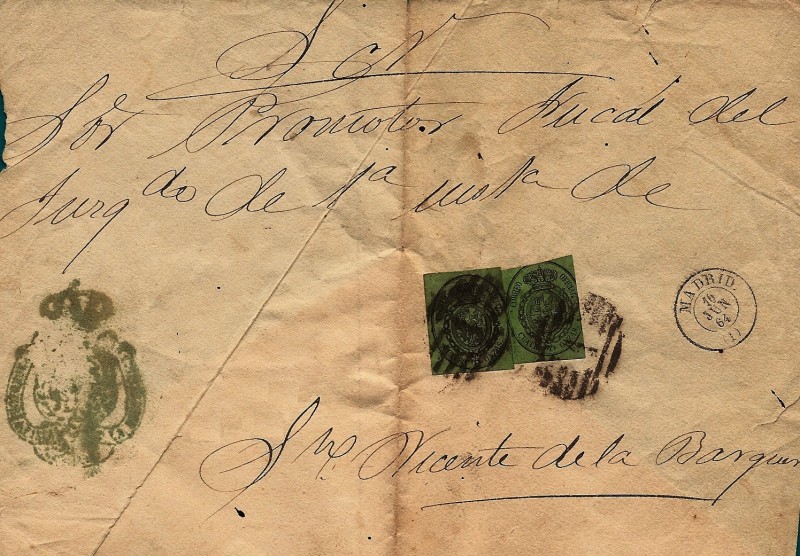 S. N.
Sor Promotor Fiscal del
Juzgdo de 1a insta de
MADRID.
16
JUN
64
(1)
Sn. Vicente de la Barquer